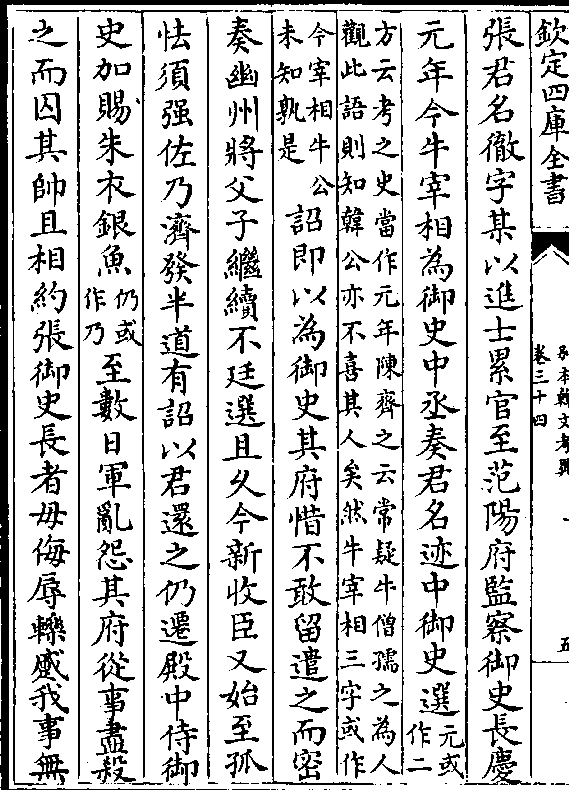 欽定四庫全書
別本韓文考異
卷三十四
五
張君名徹字某以進士累官至范陽府監察御史長慶
元年今牛宰相為御史中丞奏君名迹中御史選元或
作二
方云考之史當作元年陳齊之云常疑牛僧孺之為人
觀此語則知韓公亦不喜其人矣然牛宰相三字或作
今宰相牛公
未知孰是
詔即以為御史其府惜不敢留遣之而密
奏幽州將父子繼續不廷選且久今新收臣又始至孤
怯須强佐乃濟發半道有詔以君還之仍遷殿中侍御
史加賜朱衣銀魚仍或
作乃
至數日軍亂怨其府從事盡殺
之而囚其帥且相約張御史長者毋侮辱轢蹙我事無